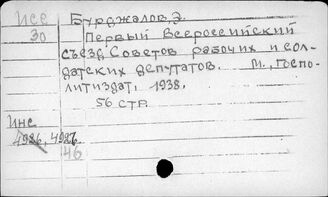 Исе Бурджалов, Э.
30 Первый Всероссийский
съезд Советов рабочих и сол-
датских депутатов. М., Госпо-
литиздат, 1938.
56 стр.
Инс
4986, 4987.
46